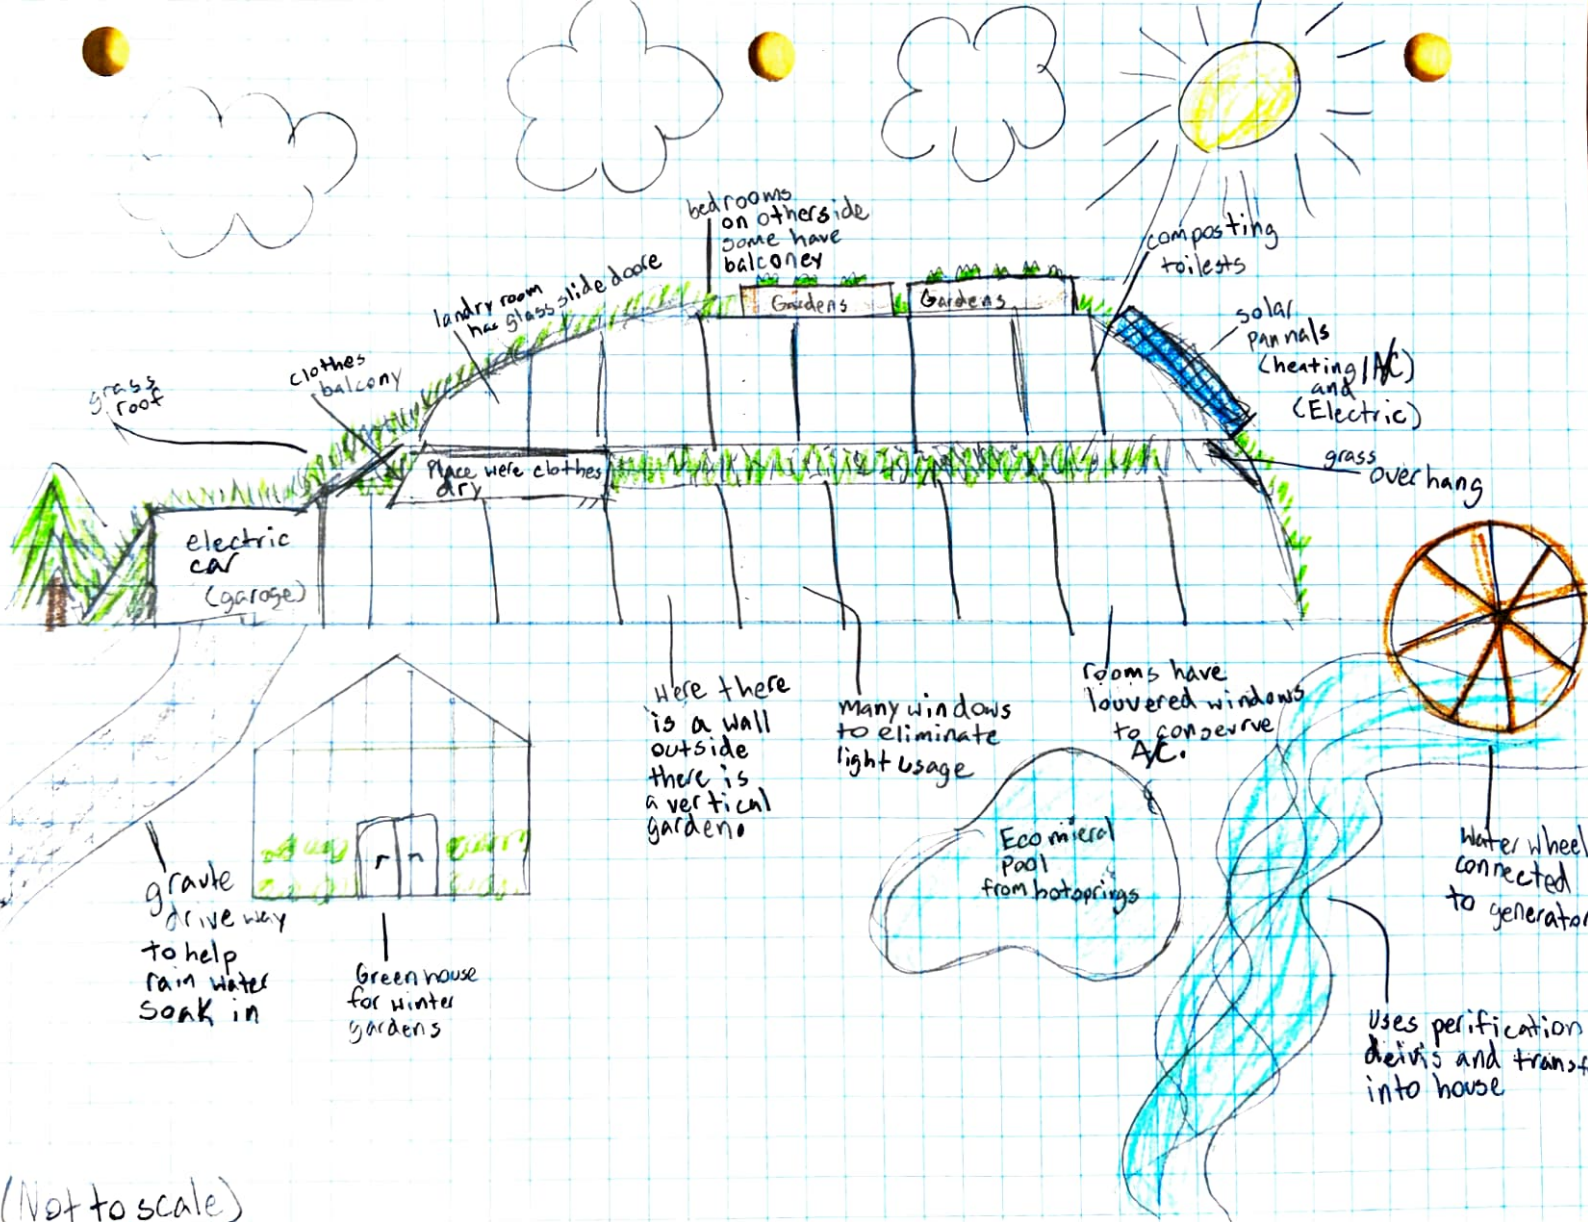 bedrooms
on otherside
some have
balconey
landry room
has glass slide doore
clothes
balcony
grass
roof
Gardens
Gardens
composting
toilests
solar
pannals
(heating/A/C)
and
(Electric)
grass
overhang
Place were clothes
dry
electric
car
(garage)
Were there
is a wall
outside
there is
a vertical
garden.
many windows
to eliminate
light usage
rooms have
louvered windows
to conserve
A/C.
Eco mieral
Pool
from hotsprings
Water wheel
connected
to generator
gravle
drive way
to help
rain water
soak in
Green house
for winter
gardens
Uses perification
deivis and transf
into house
(Not to scale)